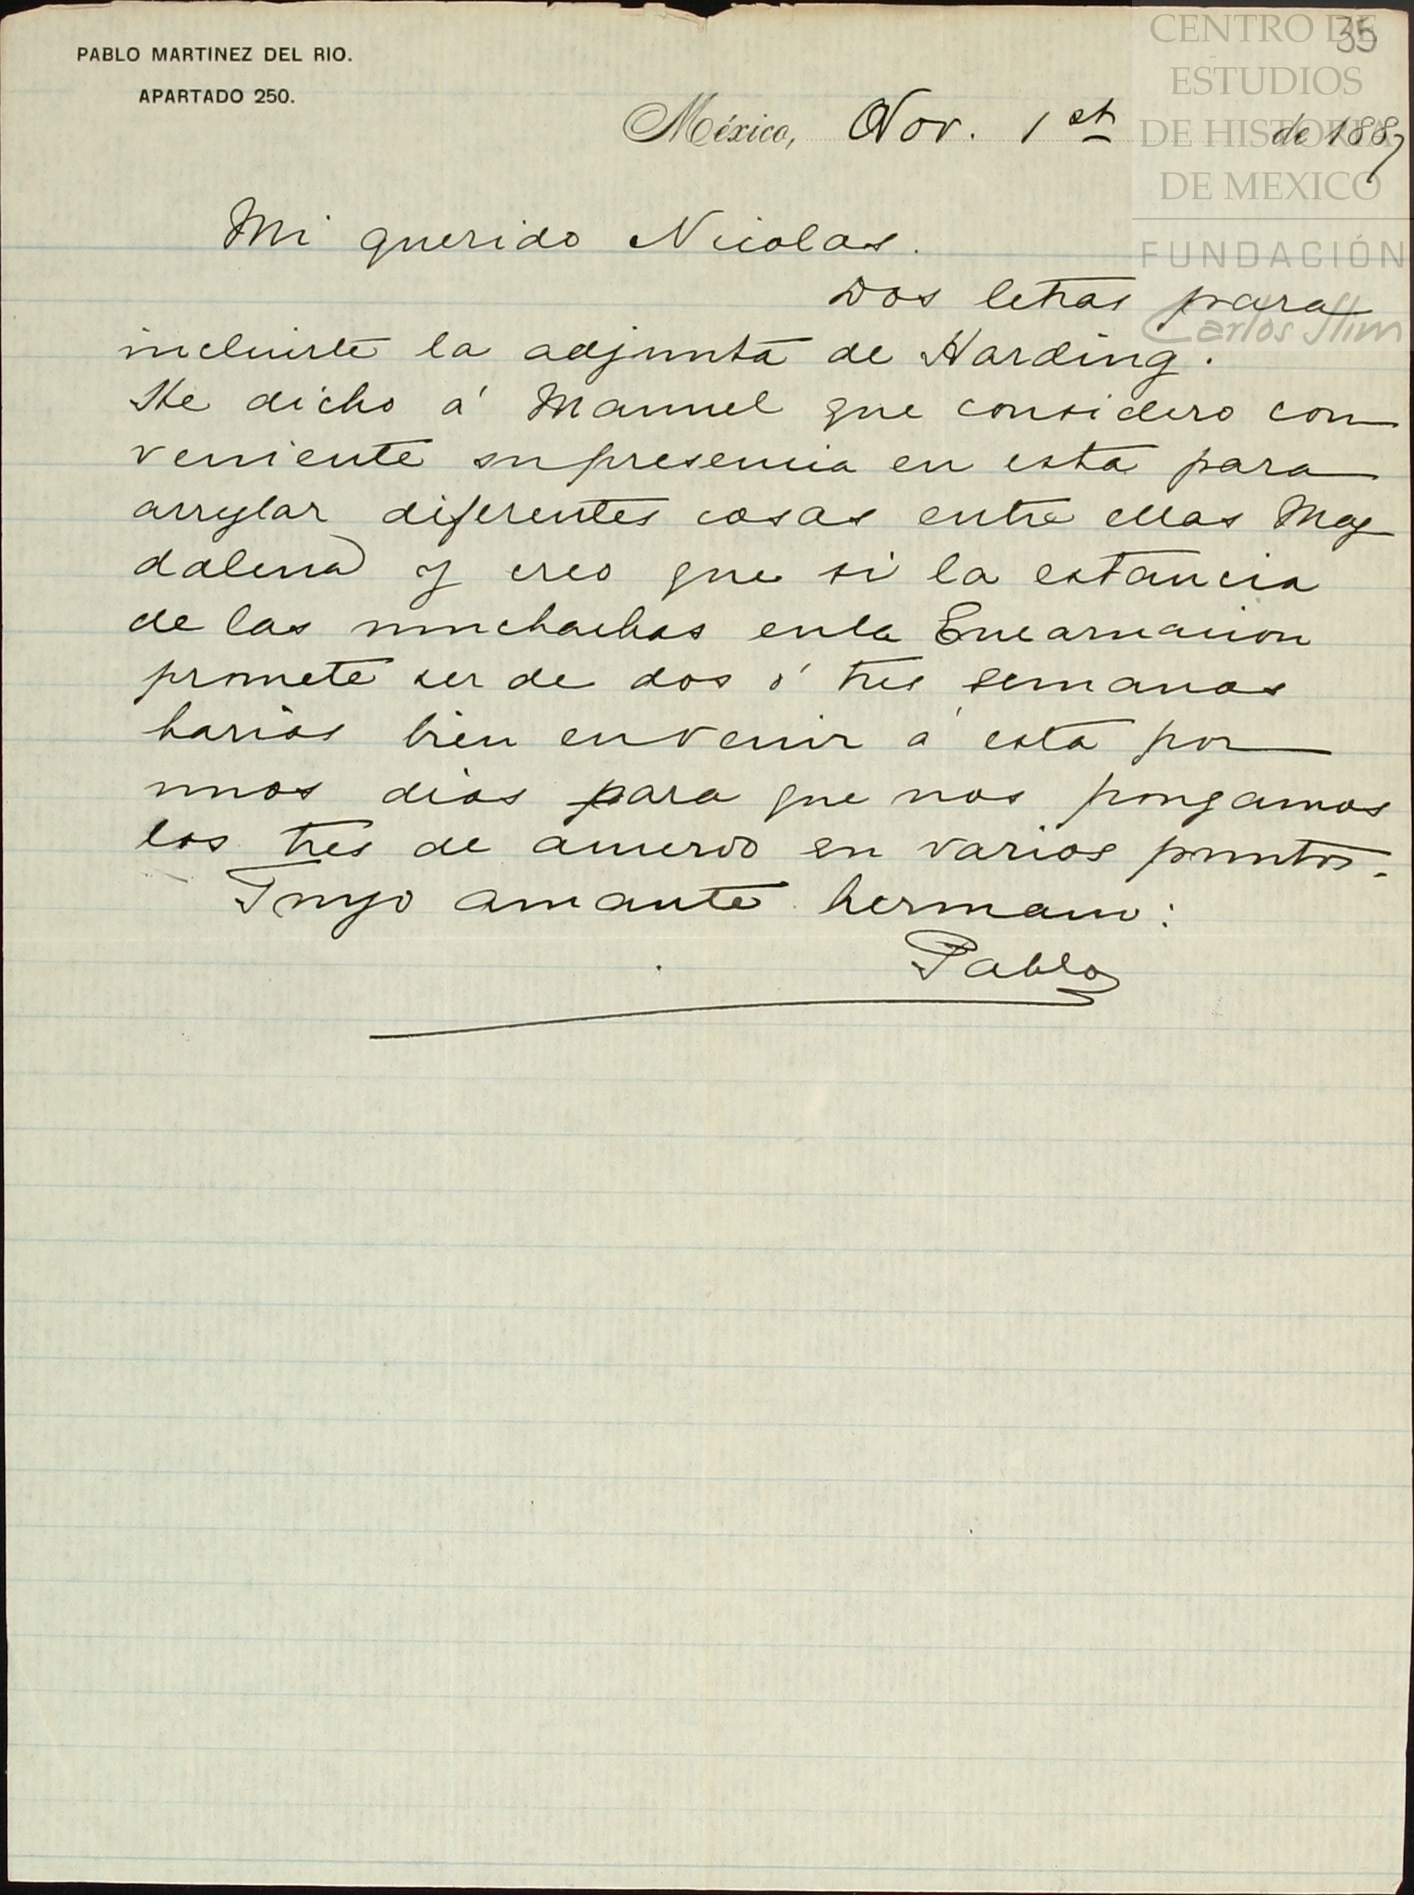 35
CENTRO DE
ESTUDIOS
DE HISTORIA
DE MEXICO
FUNDACIÓN
Carlos Slim
PABLO MARTINEZ DEL RIO.
APARTADO 250.
México, Nov. 1st de 1887
Mi querido Nicolas.
Dos letras para
incluirte la adjunta de Harding.
He dicho á Manuel que considero con
veniente su presencia en esta para
arreglar diferentes cosas entre ellas Mag
dalena y creo que si la estancia
de las muchachas en la Encarnacion
promete ser de dos ó tres semanas
harias bien en venir á esta por
unos dias para que nos pongamos
los tres de acuerdo en varios puntos.
Tuyo amante hermano:
Pablo